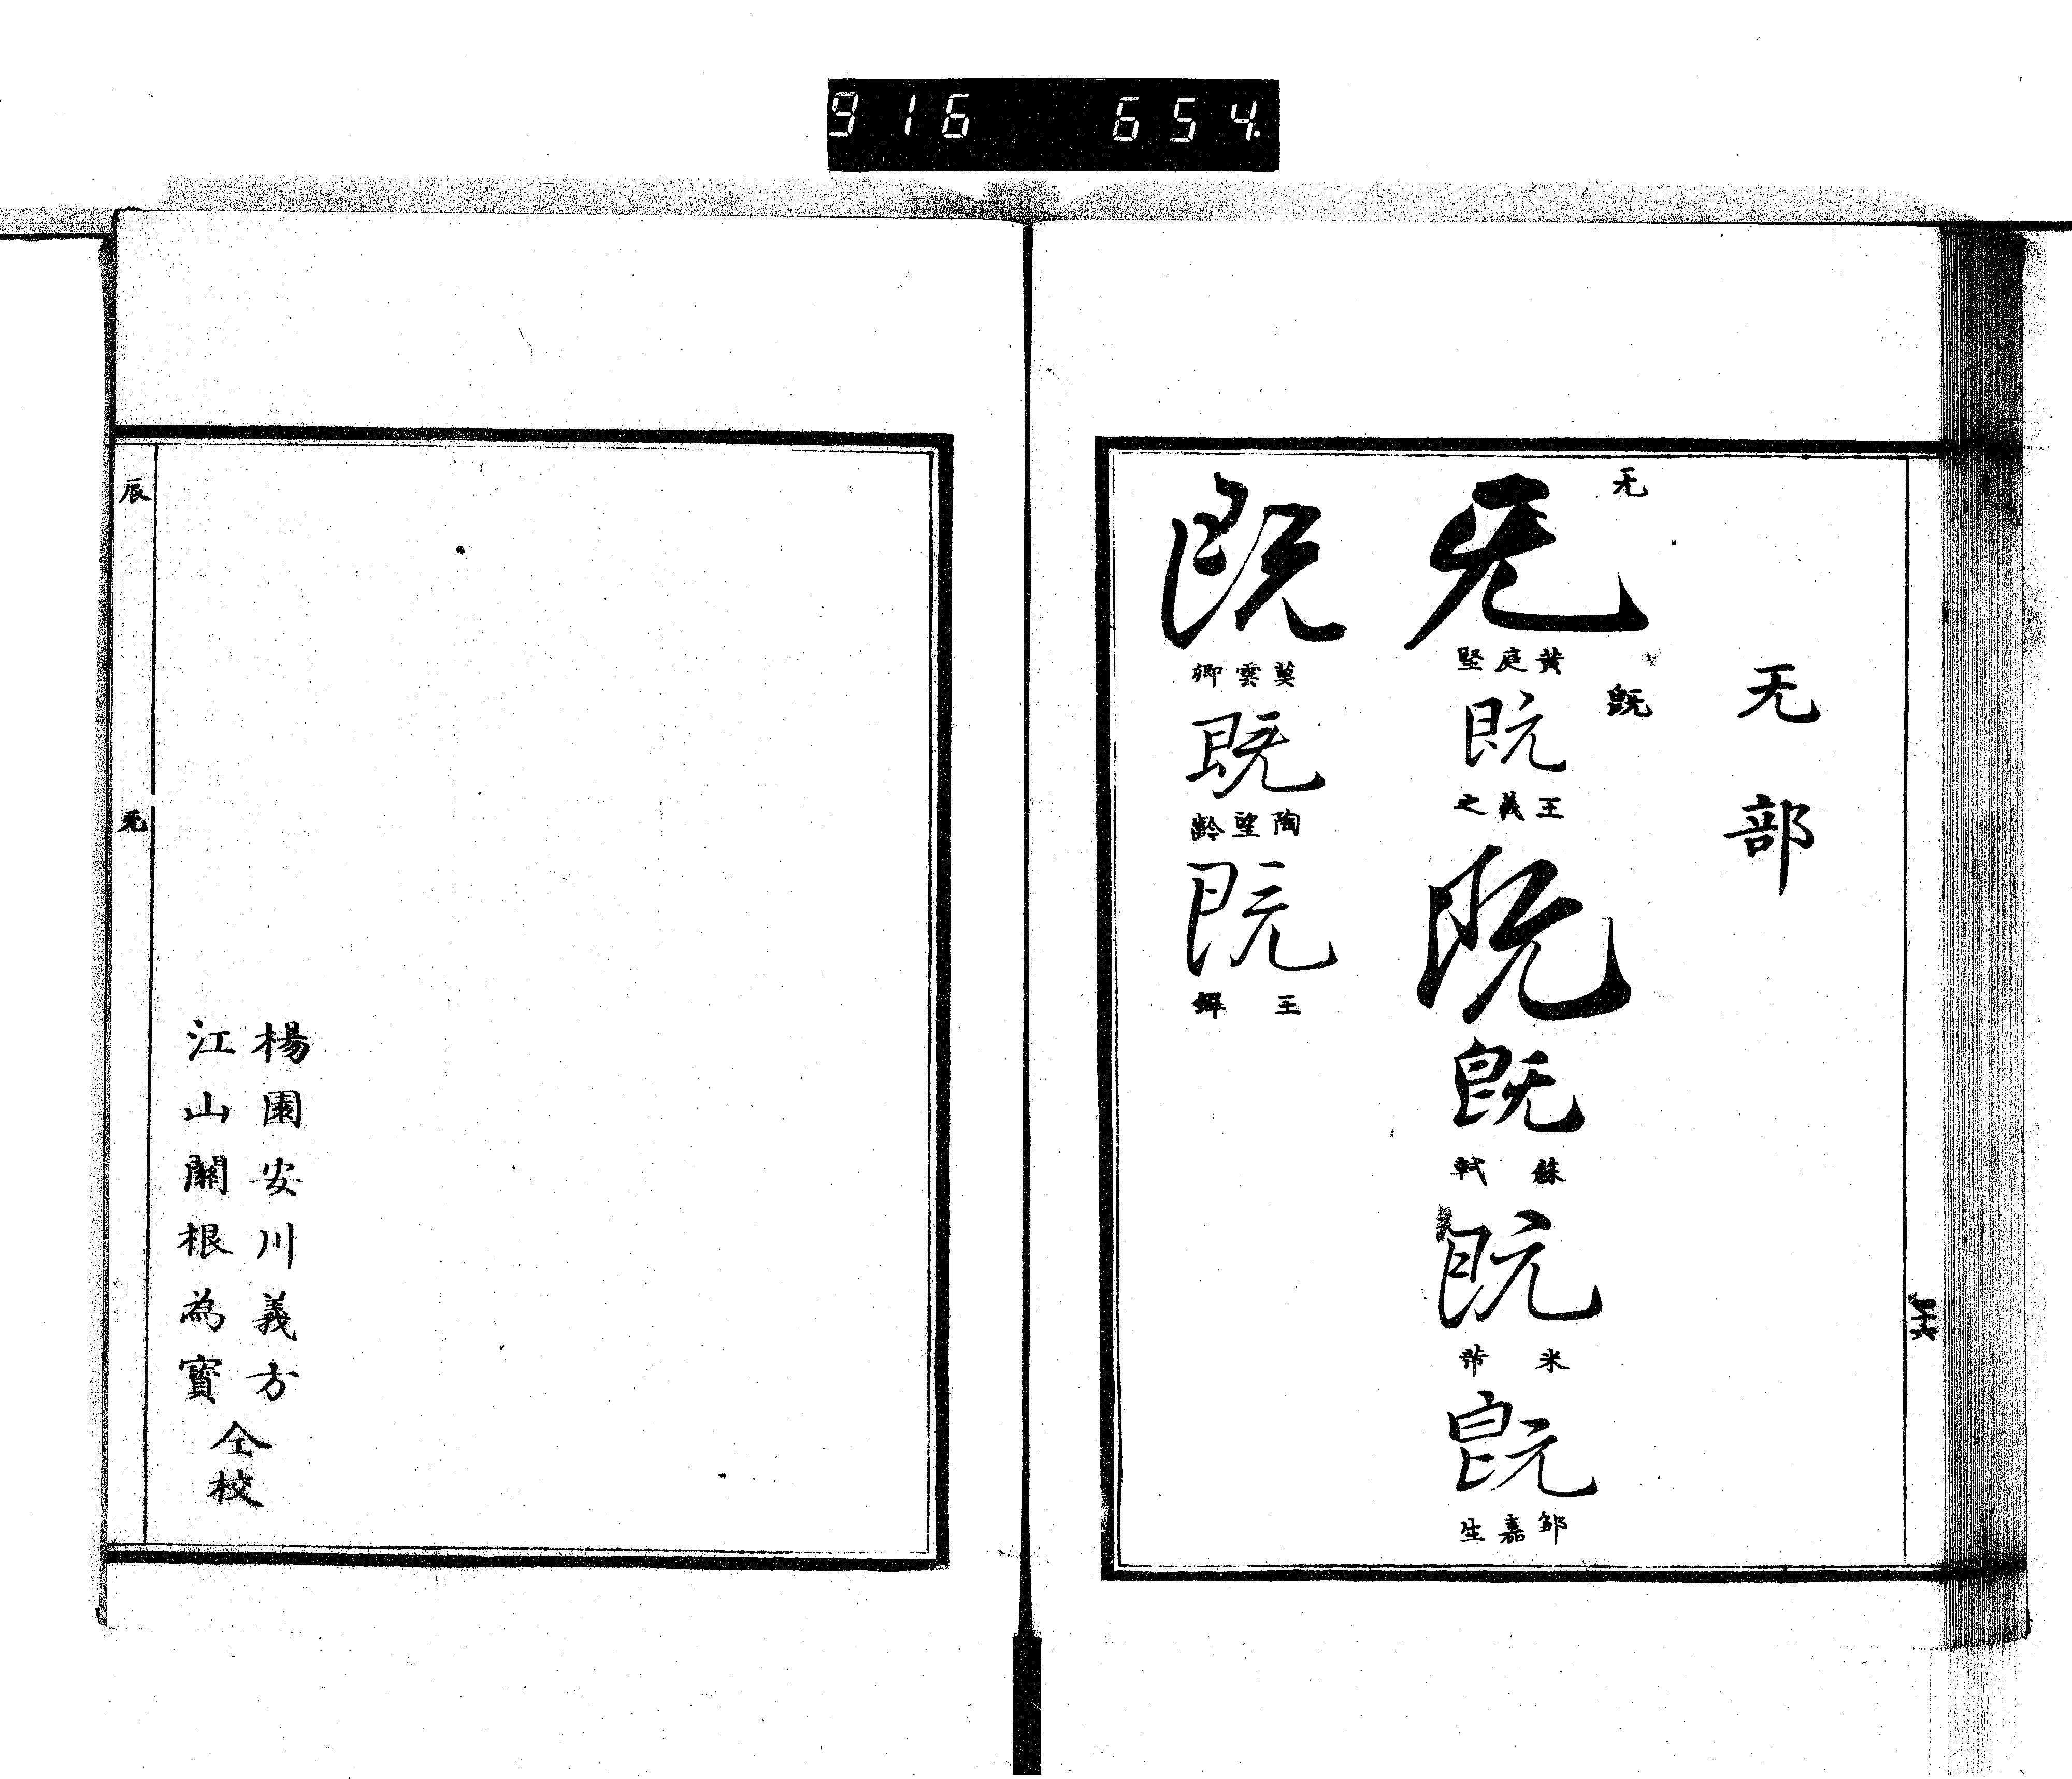 916 654
无部
无
无
黄庭堅
既
既
王羲之
既
既
蘇軾
既
米芾
既
鄒嘉生
既
莫雲卿
既
陶望齡
既
王鐸
四十六
辰
无
楊園安川義方
江山關根為寶
仝校